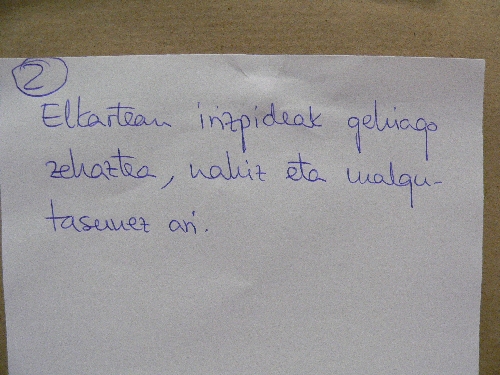 2
Elkartean irizpideak gehiago
zehaztea, nahiz eta malgu-
tasunez ari.